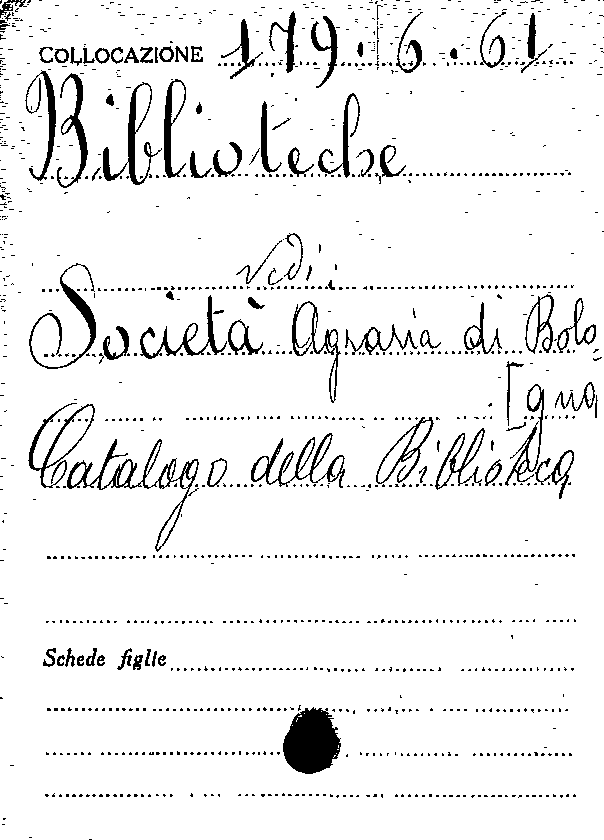 COLLOCAZIONE 179.6.61
Biblioteche
Vedi:
Società Agraria di Bolo-
[gna
Catalogo della Biblioteca
Schede figlie